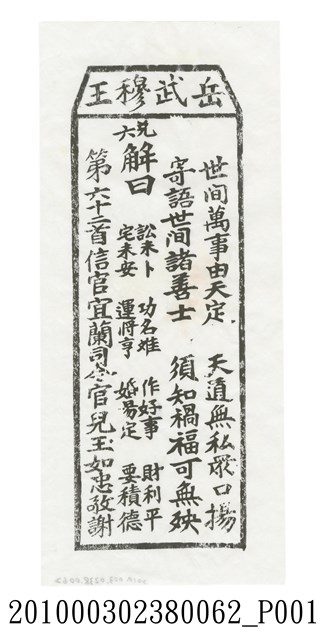 岳武穆王
世间萬事由天定　天道無私眾口揚
寄語世间諸善士　須知禍福可無殃
兌六
解曰
訟未卜　功名难　作好事　財利平
宅未安　運將亨　婚易定　要積德
第六十二首信官宜蘭司令官兒玉如忠敬謝
201000302380062_P001